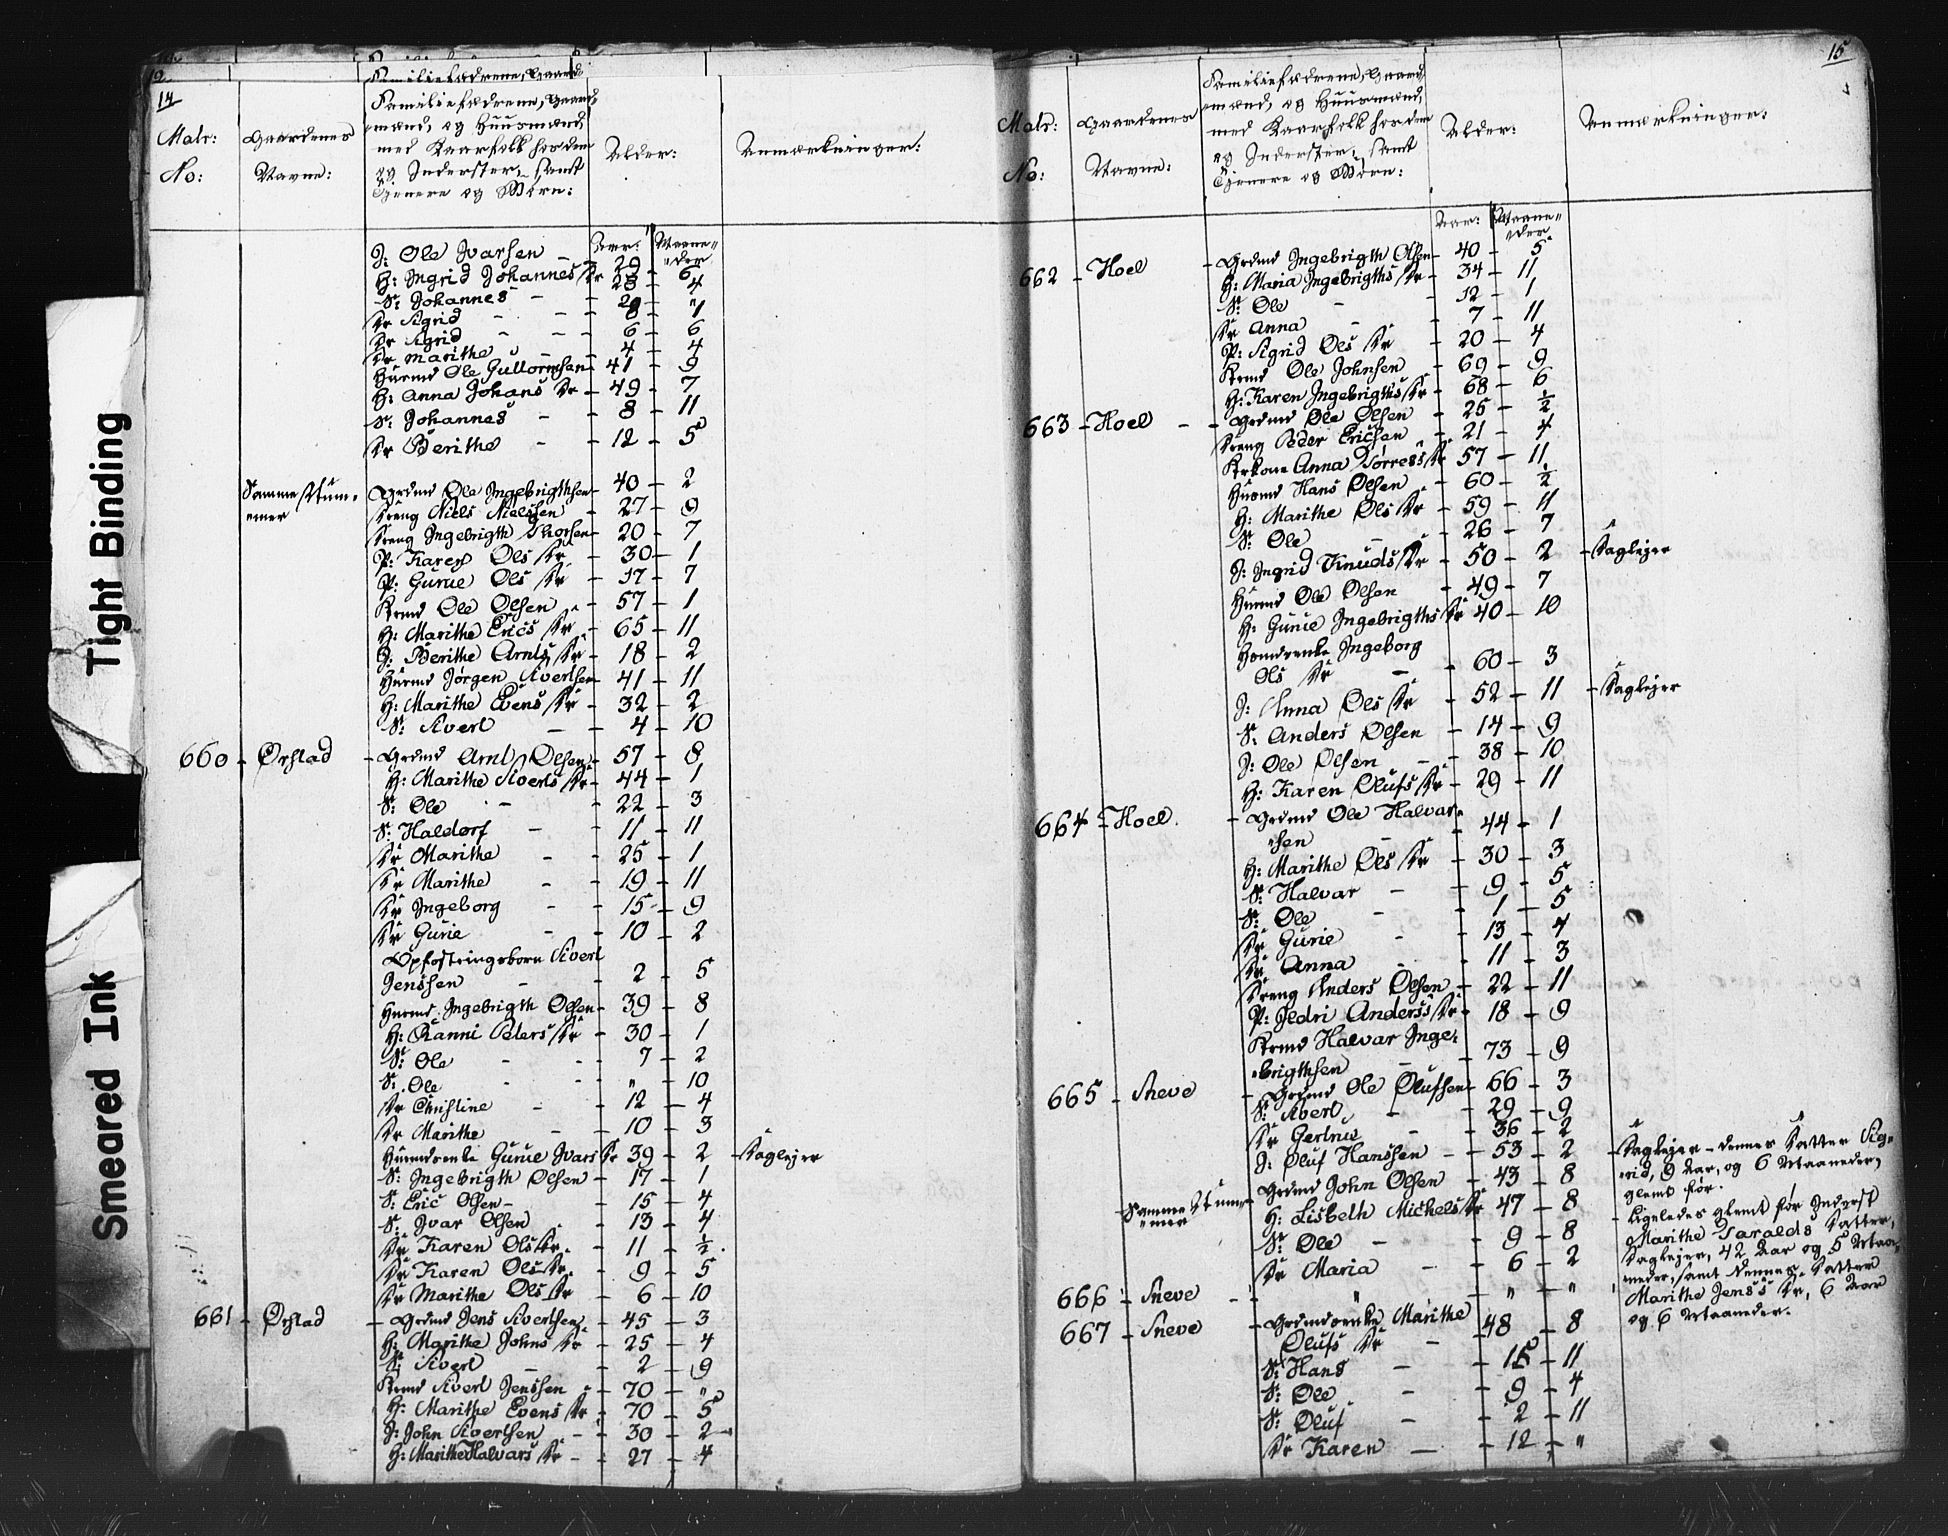 14
Matr:
No:
Gaardenes
Navne:
Familiefædrene, Gaard-
mænd, og Huusmænd,
med Kaarfolk hos dem
og Inderster, samt
Tjenere og Børn:
Alder:
Anmærkninger:
Aar: Maane-
der
I: Ole Ivarsen - 29 - 6
H: Ingrid Johannes Dr 28 - 4
S: Johannes - - 20 - "
Dr Sigrid - - 8 - 1
Dr Sigrid - - 6 - 6
Dr Marithe - 4 - 4
Huusmd Ole Gullormsen - 41 - 9
H: Anna Johans Dr - 49 - 7
S: Johannes - 8 - 11
Dr Berithe - - 12 - 5
Samme Num-
mer
Grdmd Ole Ingebrigthsen - 40 - 2
Dreng Niels Nielssen - 27 - 9
Dreng Ingebrigth Thorsen - 20 - 7
P: Karen Ols Dr - 30 - 1
P: Gurue Ols Dr - 17 - 7
Krmd Ole Olsen - 57 - 1
H: Marithe Erics Dr - 65 - 11
I: Berithe Arnts Dr - 18 - 2
Huusmd Jørgen Sivertsen - 41 - 11
H: Marithe Evens Dr - 32 - 2
S: Sivert - 4 - 10
660 - Ørstad - Grdmd Arnt Olsen - 57 - 8
H: Marithe Siverts Dr - 44 - 1
S: Ole - - 22 - 3
S: Haldorf - - 11 - 11
Dr Marithe - - 25 - 1
Dr Marithe - - 19 - 11
Dr Ingeborg - - 15 - 9
Dr Gurie - - 10 - 2
Opfostringsbørn Sivert
Jenssen - 2 - 5
Huusmd. Ingebrigth Olsen - 39 - 8
H: Ranni Peders Dr - 30 - 1
S: Ole - - 7 - 2
S: Ole - - " - 10
Dr Christine - - 12 - 4
Dr Marithe - - 10 - 3
Huusmdenke Gurue Ivars Dr 39 - 2 - Daglejer
S: Ingebrigth Olsen - 17 - 1
S: Eric Olsen - 15 - 4
S: Ivar Olsen - 13 - 4
Dr Karen Ols Dr - 11 - ½
Dr Karen Ols Dr - 9 - 5
Dr Marithe Ols Dr - 6 - 10
661 - Ørstad - Grdmd Jens Sivertsen - 45 - 3
H: Marithe Johns Dr - 25 - 4
S: Sivert - 2 - 9
Krmd Sivert Jenssen - 70 - "
H: Marithe Evens Dr - 70 - 5
I: John Sivertsen - 30 - 2
H: Marithe Halvars Dr - 27 - 4
15
Matr:
No:
Gaardenes
Navne:
Familiefædrene, Gaard-
mænd, og Huusmænd,
med Kaarfolk hos dem
og Inderster, samt
Tjenere og Børn:
Alder:
Anmærkninger:
Aar: Maane-
der
662 - Hoel - Grdmd Ingebrigth Olsen - 40 - 5
H: Maria Ingebrigths Dr - 34 - 11
S: Ole - - 12 - 1
Dr Anna - - 7 - 11
P: Sigrid Ols Dr - 20 - 4
Krmd Ole Johnsen - 69 - 9
H: Karen Ingebrigths Dr - 68 - 6
663 - Hoel - - Grdmd Ole Olsen - 25 - ½
Dreng Peder Ericsen - 21 - 4
Krkone Anna Torress Dr - 57 - 11
Huusmd Hans Olsen - 60 - ½
H: Marithe Ols Dr - 59 - 11
S: Ole - - 26 - 7
I: Ingrid Knuds Dr - 50 - 2 - Daglejer
Huusmd Ole Olsen - 49 - 7
H: Gurue Ingebrigths Dr 40 - 10
Huusmdenke Ingeborg
Ols Dr - - 60 - 3
I: Anna Ols Dr - 52 - 11 - Daglejer
S: Anders Olsen - 14 - 9
I: Ole Olsen - - 38 - 10
H: Karen Olufs Dr - 29 - 11
664 - Hoel. - Grdmd Ole Halvar-
sen - 44 - 1
H: Marithe Ols Dr - 30 - 3
S: Halvar - - 9 - 5
S: Ole - - 1 - 5
Dr Gurie - - 13 - 4
Dr Anna - - 11 - 3
Dreng Anders Olsen - 22 - 11
P: Jedri Anderss Dr - 18 - 9
Krmd Halvar Inge-
brigthsen - 73 - 9
665 - Sneve - Grdmd Ole Olufsen - 66 - 3
S: Sivert - - 29 - 9
Dr Gertrus - - 36 - 2
I: Oluf Hanssen - 53 - 2 - Daglejer - dennes Datter Sig-
rid, 9 Aar, og 6 Maaneder,
glemt før.
Samme Num-
mer
Grdmd John Olsen - 43 - 8
H: Lisbeth Michels Dr 47 - 8
- Ligeledes glemt før Inderst
Marithe Taralds Datter,
Daglejer, 42 Aar og 5 Maa-
neder, samt dennes Datter
Marithe Jenss Dr, 6 Aar
og 6 Maaneder.
S: Ole - - 9 - 8
Dr Maria - - 6 - 2
666 - Sneve - - " - " - "
667 - Sneve - Grdmdenke Marithe
Olufs Dr - 48 - 8
S: Hans - - 15 - 11
S: Ole - - 9 - 4
S: Oluf - - 2 - 11
Dr Karen - - 12 - "
Tight Binding
Smeared Ink